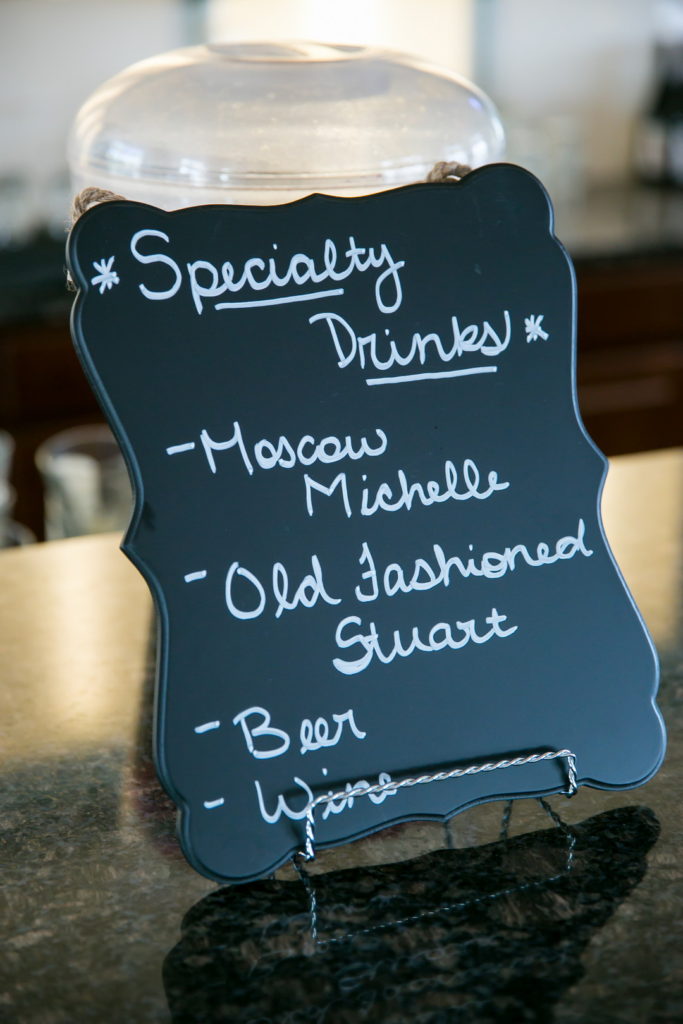 * Specialty
Drinks *
- Moscow
Michelle
- Old Fashioned
Stuart
- Beer
- Wine